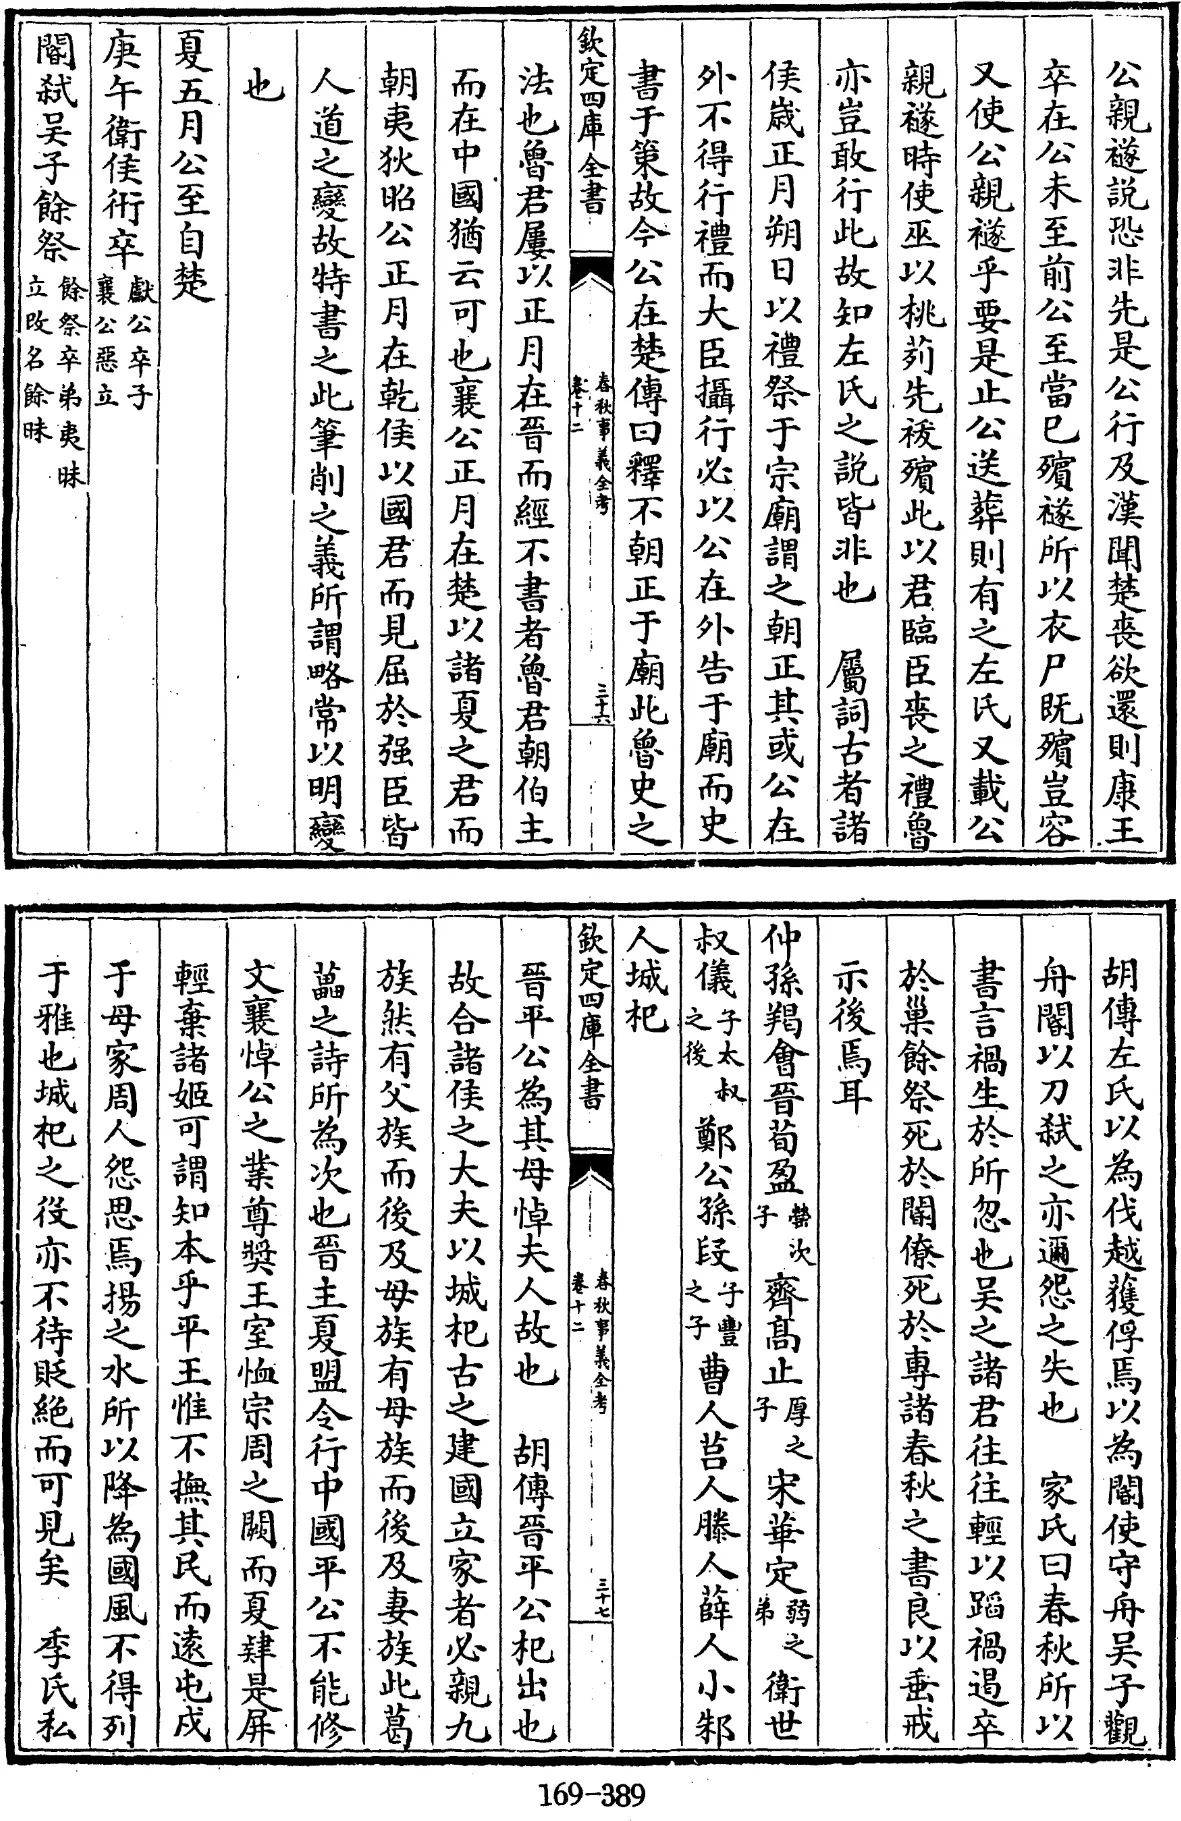 公親襚説恐非先是公行及漢聞楚喪欲還則康王
卒在公未至前公至當已殯襚所以衣尸既殯豈容
又使公親襚乎要是止公送葬則有之左氏又載公
親襚時使巫以桃茢先祓殯此以君臨臣喪之禮魯
亦豈敢行此故知左氏之説皆非也　屬詞古者諸
侯歲正月朔日以禮祭于宗廟謂之朝正其或公在
外不得行禮而大臣攝行必以公在外告于廟而史
書于策故今公在楚傳曰釋不朝正于廟此魯史之
欽定四庫全書
春秋事義全考
卷十二
三十六
法也魯君屢以正月在晉而經不書者魯君朝伯主
而在中國猶云可也襄公正月在楚以諸夏之君而
朝夷狄昭公正月在乾侯以國君而見屈於强臣皆
人道之變故特書之此筆削之義所謂略常以明變
也
夏五月公至自楚
庚午衛侯衎卒獻公卒子襄公惡立
閽弑吴子餘祭餘祭卒弟夷昧立改名餘昧
胡傳左氏以為伐越獲俘焉以為閽使守舟吴子觀
舟閽以刀弑之亦邇怨之失也　家氏曰春秋所以
書言禍生於所忽也吴之諸君往往輕以蹈禍遏卒
於巢餘祭死於閽僚死於專諸春秋之書良以垂戒
示後焉耳
仲孫羯會晉荀盈罃次子齊高止厚之子宋華定弱之弟衛世
叔儀子太叔之後鄭公孫段子豐之子曹人莒人滕人薛人小邾
人城杞
欽定四庫全書
春秋事義全考
卷十二
三十七
晉平公為其母悼夫人故也　胡傳晉平公杞出也
故合諸侯之大夫以城杞古之建國立家者必親九
族然有父族而後及母族有母族而後及妻族此葛
藟之詩所為次也晉主夏盟令行中國平公不能修
文襄悼公之業尊奬王室恤宗周之闕而夏肄是屏
輕棄諸姬可謂知本乎平王惟不撫其民而遠屯戍
于母家周人怨思焉揚之水所以降為國風不得列
于雅也城杞之役亦不待貶絶而可見矣　季氏私
169-389